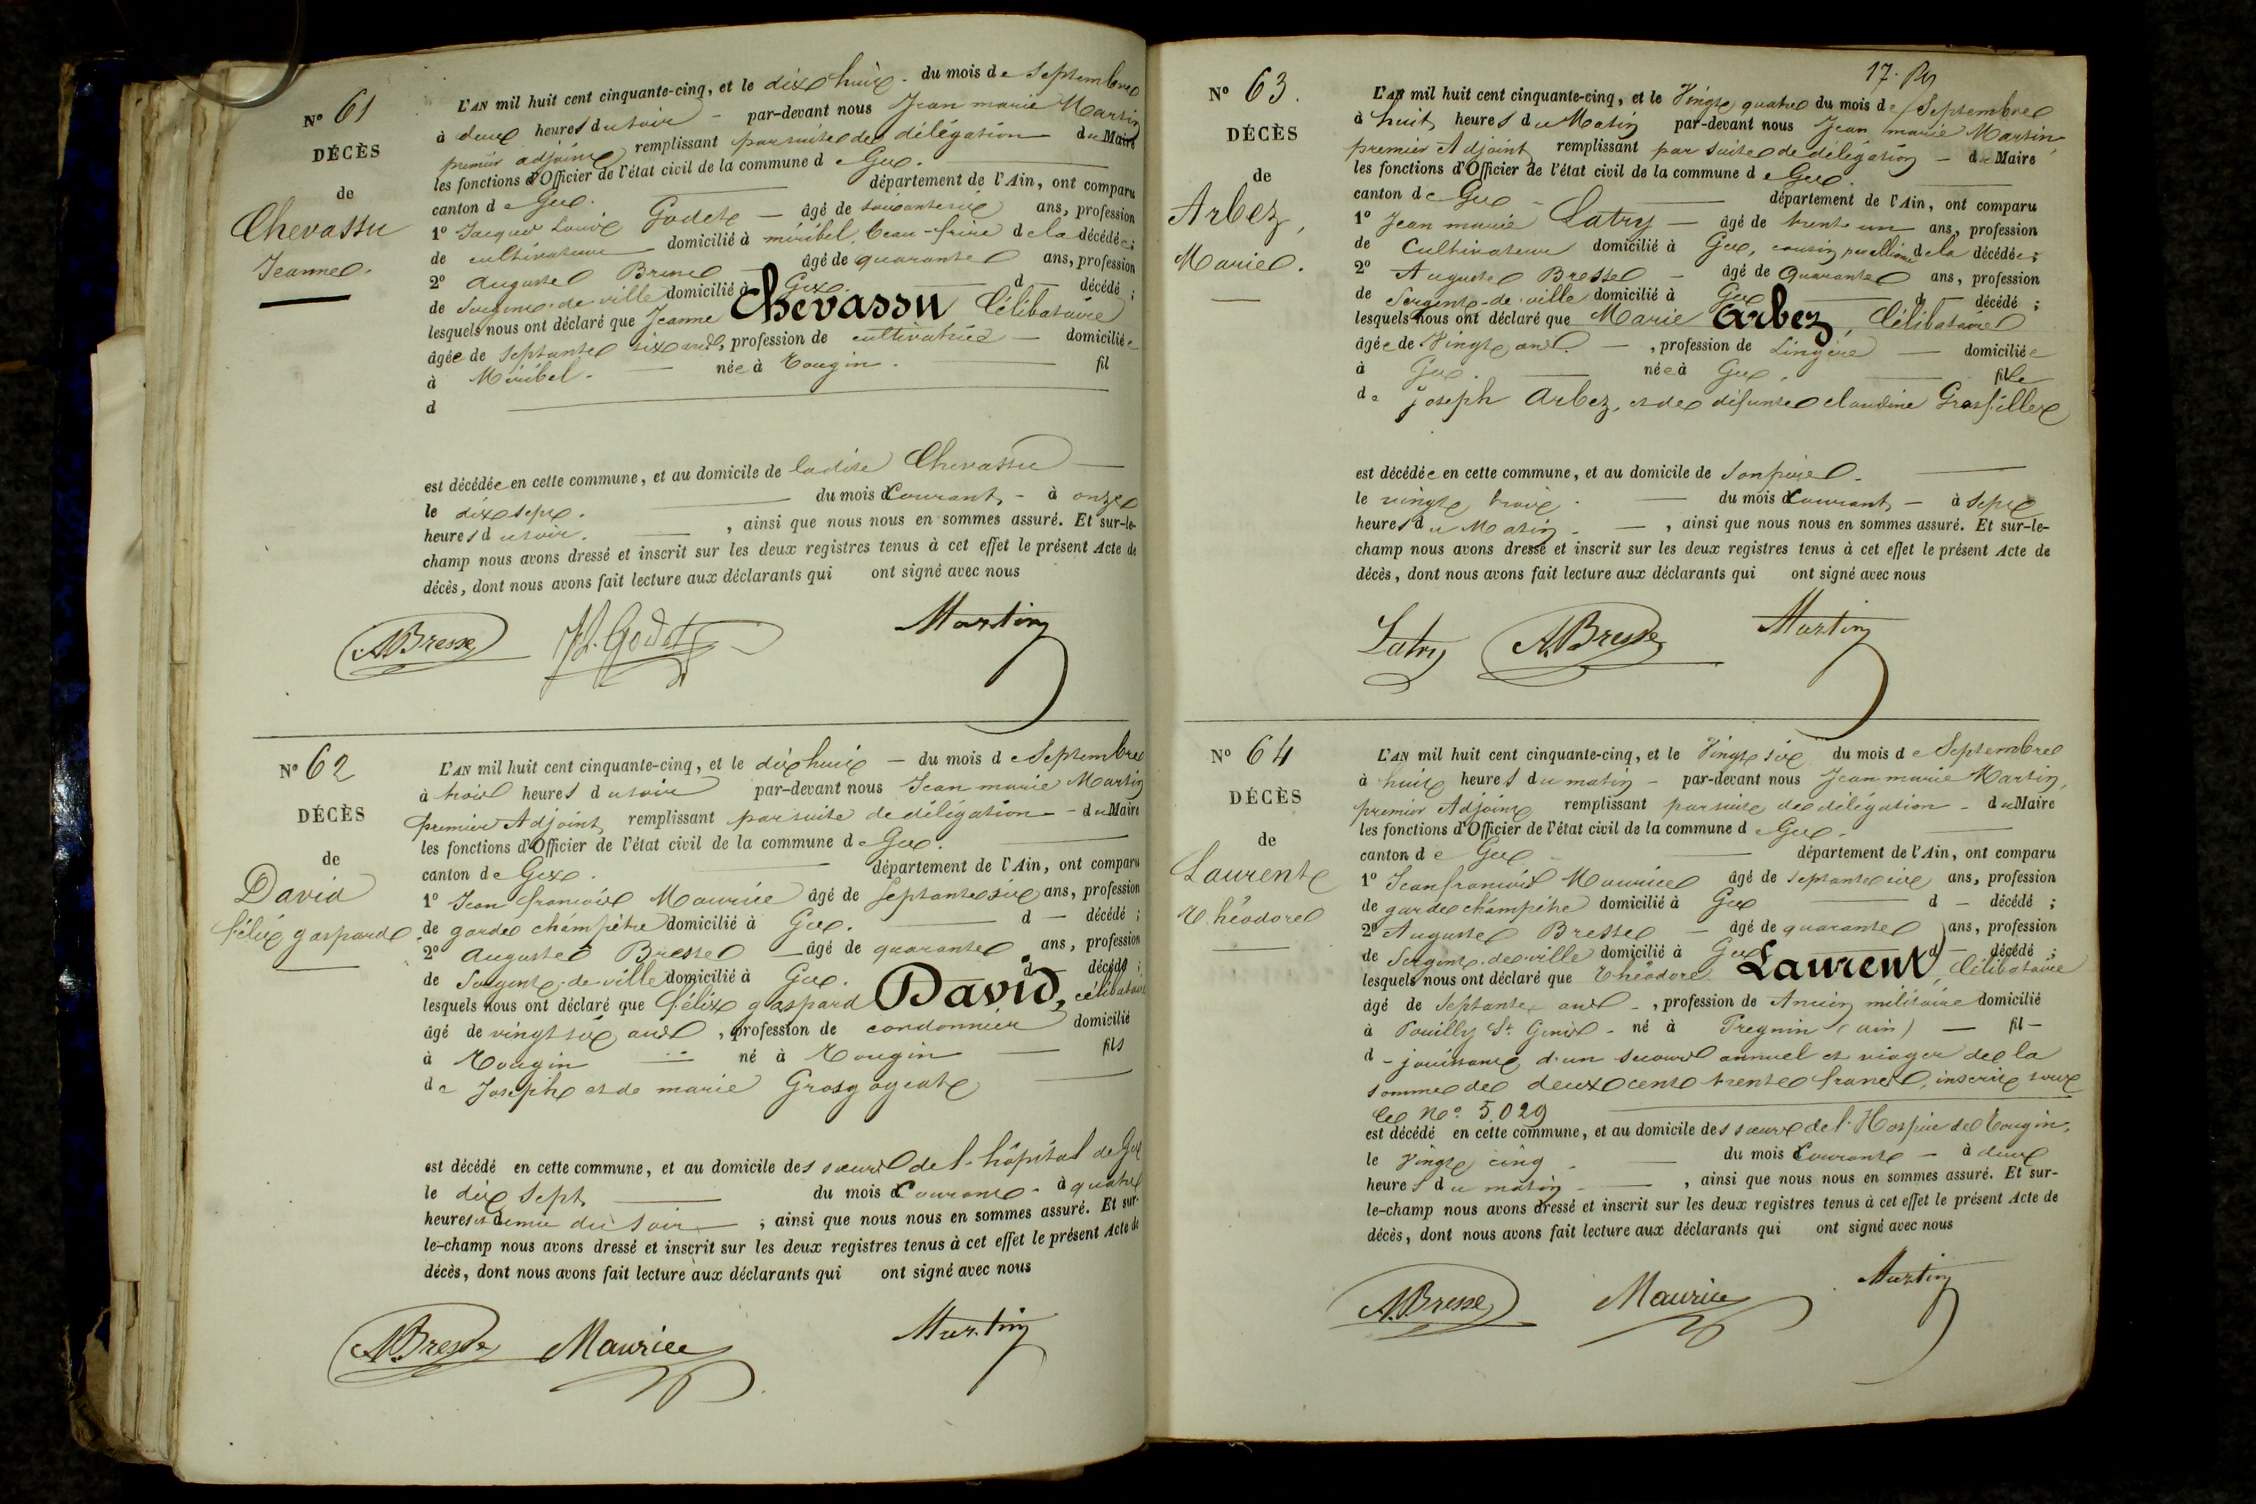 N° 61
DÉCÈS
de
Chevassu
Jeanne.
L'AN mil huit cent cinquante-cinq, et le dix huit - du mois de Septembre
à deux heures du soir - par-devant nous Jean marie Martin
premier adjoint remplissant par suite de délégation du Maire
les fonctions d'Officier de l'état civil de la commune de Gex.
canton de Gex. département de l'Ain, ont comparu
1° Jacques Louis Godet - âgé de ans, profession
de cultivateur domicilié à miribel, beau-frère de la décédée;
2° auguste Bresse âgé de quarante ans, profession
de Sergent-de-ville domicilié à Gex. d décédé ;
lesquels nous ont déclaré que Jeanne Chevassu Célibataire
âgée de Septante six ans, profession de cultivatrice - domiciliée
à Miribel. - née à Tougin. fil
d
est décédée en cette commune, et au domicile de ladite Chevassu
le dix sept. du mois Courant, - à onze
heures du soir. , ainsi que nous nous en sommes assuré. Et sur-le-
champ nous avons dressé et inscrit sur les deux registres tenus à cet effet le présent Acte de
décès, dont nous avons fait lecture aux déclarants qui ont signé avec nous
ABresse JL. Godet Martin
N° 62
DÉCÈS
de
David
félix gaspard
L'AN mil huit cent cinquante-cinq, et le dix huit - du mois de Septembre
à trois heures du soir par-devant nous Jean marie Martin
premier Adjoint, remplissant par suite de délégation - du Maire
les fonctions d'Officier de l'état civil de la commune de Gex.
canton de Gex. département de l'Ain, ont comparu
1° Jean françois Maurice âgé de Septante six ans, profession
de garde champêtre domicilié à Gex. d - décédé ;
2° auguste Bresse - âgé de quarante ans, profession
de Sergent-de-ville domicilié à Gex. d décédé ;
lesquels nous ont déclaré que félix gaspard David, célibataire
âgé de vingt six ans, profession de cordonnier domicilié
à Tougin né à Tougin - fils
de Joseph et de marie Grosgogeat
est décédé en cette commune, et au domicile des sœurs de l'hôpital de Gex
le dix sept du mois Courant - à quatre
heures et demie du soir ; ainsi que nous nous en sommes assuré. Et sur-
le-champ nous avons dressé et inscrit sur les deux registres tenus à cet effet le présent Acte de
décès, dont nous avons fait lecture aux déclarants qui ont signé avec nous
ABresse Maurice Martin
17.
N° 63.
DÉCÈS
de
Arbez,
Marie.
L'AN mil huit cent cinquante-cinq, et le Vingt quatre du mois de Septembre
à huit heures du Matin par-devant nous Jean marie Martin,
premier Adjoint remplissant par suite de délégation - du Maire
les fonctions d'Officier de l'état civil de la commune de Gex.
canton de Gex - département de l'Ain, ont comparu
1° Jean marie Latry - âgé de trente un ans, profession
de Cultivateur domicilié à Gex, cousin par alliance de la décédée;
2° Auguste Bresse - âgé de Quarante ans, profession
de Sergent-de-ville domicilié à Gex d décédé ;
lesquels nous ont déclaré que Marie Arbez, Célibataire
âgée de Vingt ans. - , profession de Lingère - domiciliée
à Gex. née à Gex. fille
de joseph Arbez, et de défunte claudine Grosfillex
est décédée en cette commune, et au domicile de Son père.
le vingt trois. du mois Courant, - à Sept
heures du Matin - , ainsi que nous nous en sommes assuré. Et sur-le-
champ nous avons dressé et inscrit sur les deux registres tenus à cet effet le présent Acte de
décès, dont nous avons fait lecture aux déclarants qui ont signé avec nous
Latry A.Bresse Martin
N° 64
DÉCÈS
de
Laurent
Théodore
L'AN mil huit cent cinquante-cinq, et le Vingt six du mois de Septembre
à huit heures du matin - par-devant nous Jean marie Martin,
premier Adjoint remplissant par suite de délégation - du Maire
les fonctions d'Officier de l'état civil de la commune de Gex.
canton de Gex - département de l'Ain, ont comparu
1° Jean françois Maurice âgé de Septante six ans, profession
de garde champêtre domicilié à Gex d - décédé ;
2° Auguste Bresse - âgé de quarante ans, profession
de Sergent-de-ville domicilié à Gex d - décédé ;
lesquels nous ont déclaré que Théodore Laurent, Célibataire
âgé de Septante ans - , profession de Ancien militaire domicilié
à Pouilly St Genis - né à Pregnin (ain) - fil -
d - jouissant d'un secours annuel et viager de la
somme de deux cent trente francs, inscrit sous
le N° 5029
est décédé en cette commune, et au domicile des sœurs de l'Hospice de Tougin,
le Vingt cinq - du mois Courant - à deux
heures du matin , ainsi que nous nous en sommes assuré. Et sur-
le-champ nous avons dressé et inscrit sur les deux registres tenus à cet effet le présent Acte de
décès, dont nous avons fait lecture aux déclarants qui ont signé avec nous
ABresse Maurice Martin